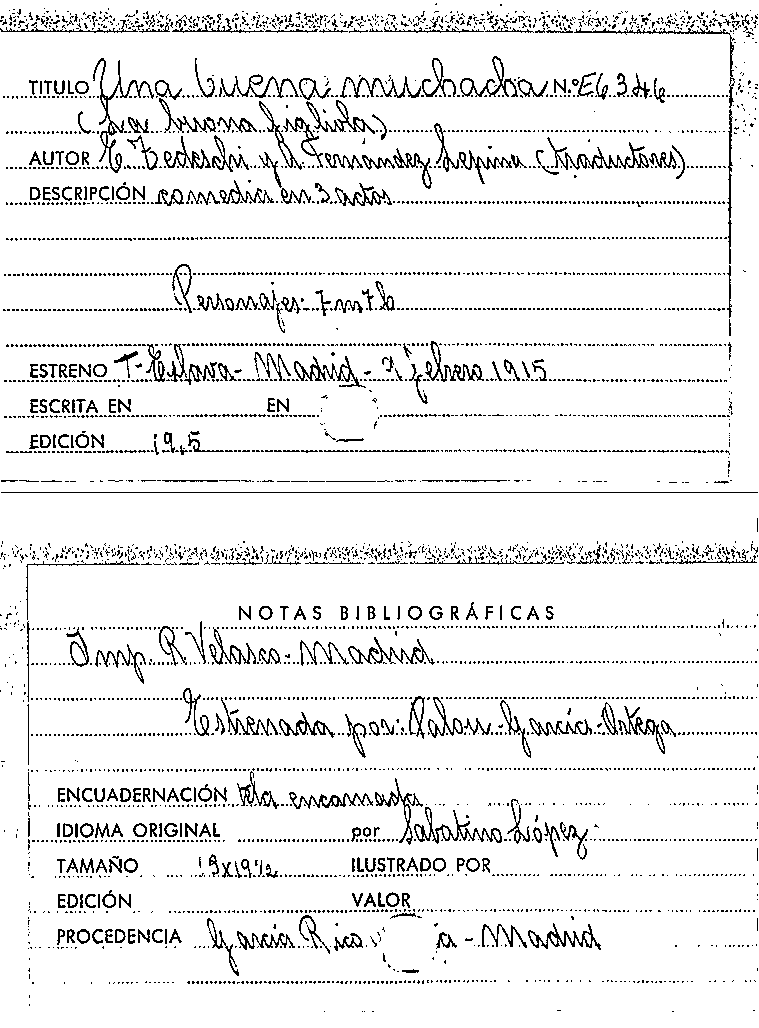 TITULO Una buena muchacha N.º E6 346
(La buona figliola)
AUTOR E. Tedeschi y A. Fernández Lepina (traductores)
DESCRIPCIÓN comedia en 3 actos
Personajes: 7 m 7 h
ESTRENO T- Eslava - Madrid - febrero 1915
ESCRITA EN EN
EDICIÓN 19,5
NOTAS BIBLIOGRÁFICAS
Imp. R Velasco - Madrid
Estrenada por: Palou - García - Ortega
ENCUADERNACIÓN tela encarnada
IDIOMA ORIGINAL por Sabatino López
TAMAÑO x19½ ILUSTRADO POR
EDICIÓN VALOR
PROCEDENCIA García Rico - Madrid